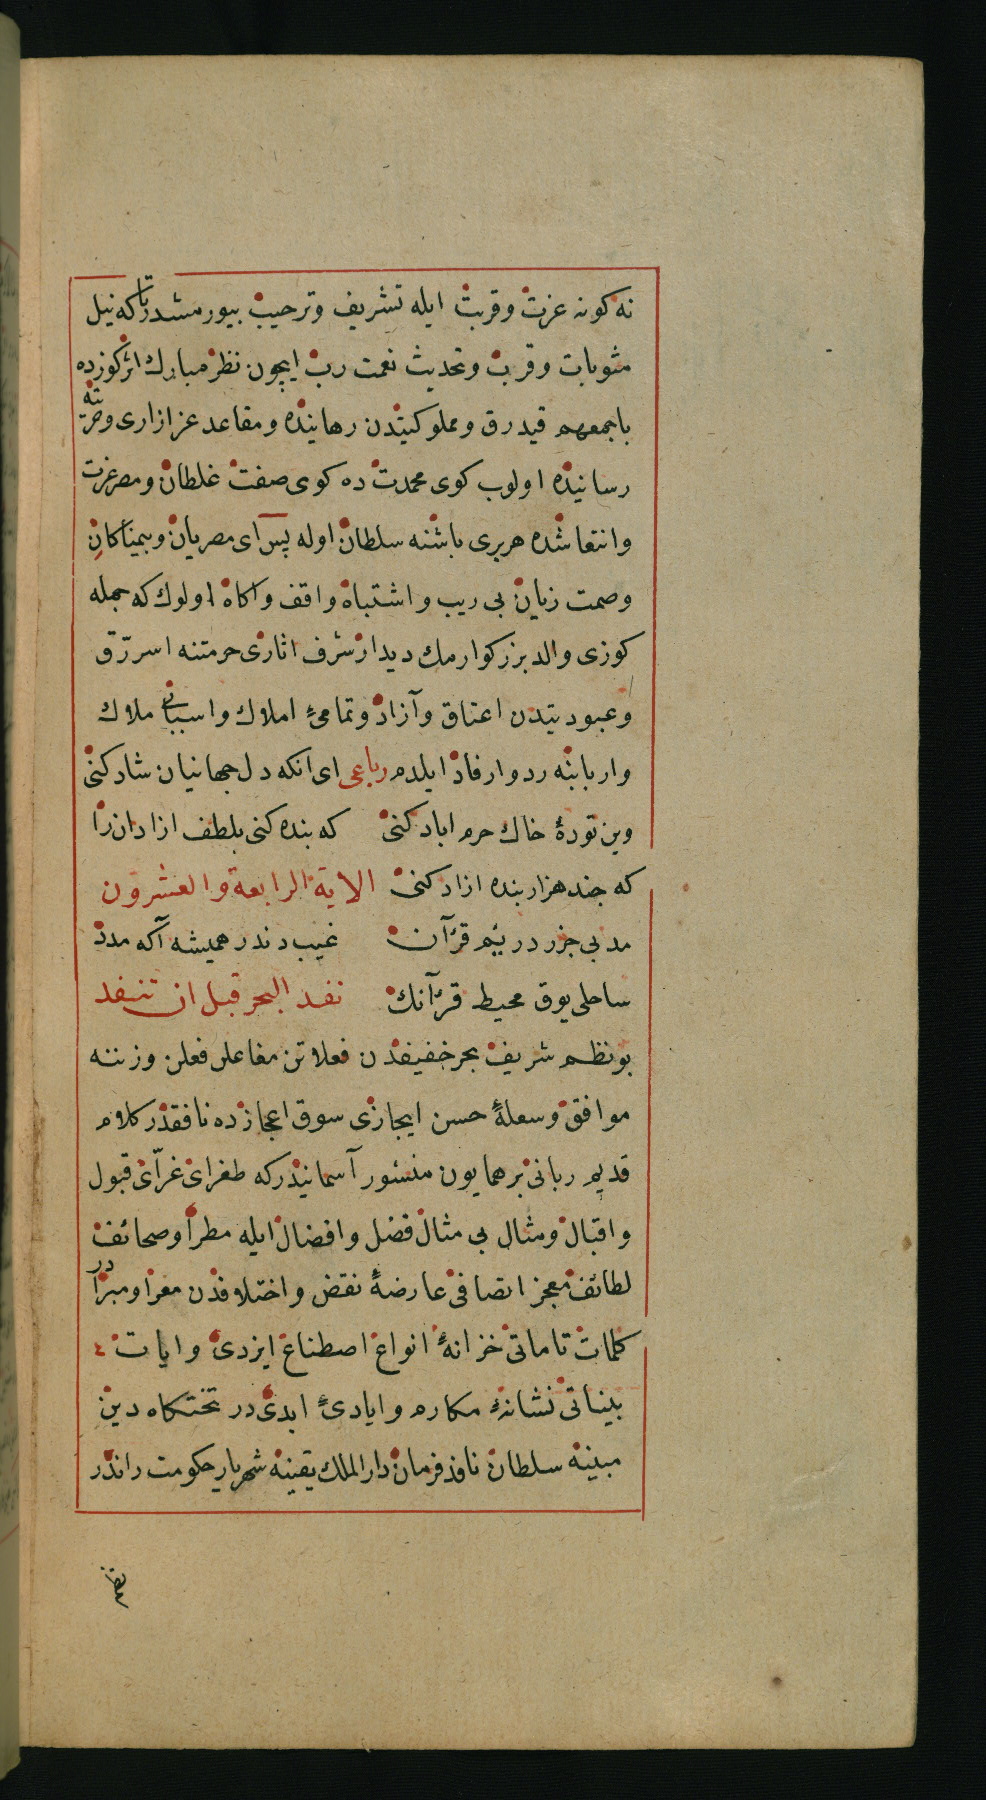 نه كونه عزت وقربت ايله تشريف وترحيب بيورمشدر تا كه نيل
مثوبات وقربت وتحديث نعمت رب ايچون نظر مبارك اثر كوزده
باجمعهم قيد رق ومملوكيتدن رهانيده ومقاعد عز ازادى وحريته
رسانيده اولوب كوى محمدت ده كوى صفت غلطان ومصر عزت
وانتعاشده هر برى باشنه سلطان اوله پس اى مصريان وبيمناكان
وصمت زيان بى ريب واشتباه واقف واكاه اولوك كه جمله
كوزى والد بزركوارمك ديدار شرف اثارى حرمتنه اسر رق
وعبوديتدن اعتاق وآزاد وتمامئ املاك واسبابى ملاك
واربابنه رد وارفاد ايلدم رباعى اى انكه دل جهانيان شاد كنى
وين تودهٔ خاك حرم اباد كنى كه بنده كنى بلطف ازادان را
كه چند هزار بنده ازاد كنى الاية الرابعة والعشرون
مد بى جزر در يم قرآن غيب دندر هميشه آكه مدد
ساحلى يوق محيط قرآنك نفد البحر قبل ان تنفد
بو نظم شريف بحر خفيفدن فعلاتن مفاعلن فعلن وزننه
موافق وسعلهٔ حسن ايجازى سوق اعجازده نافقدر كلام
قديم ربانى بر همايون منشور آسمانيدر كه طغراى غرّاى قبول
واقبال ومثال بى مثال فضل وافضال ايله مطرا وصحائف
لطائف معجز اتصافى عارضهٔ نقض واختلافدن معرا ومبرادر
كلمات تاماتى خزانهٔ انواع اصطناع ايزدى وايات
بيناتى نشانهٔ مكارم وايادئ ابدى در تختكاه دين
مبينه سلطان نافذ فرمان دار الملك يقينه شهريار حكومت راندر
نظم